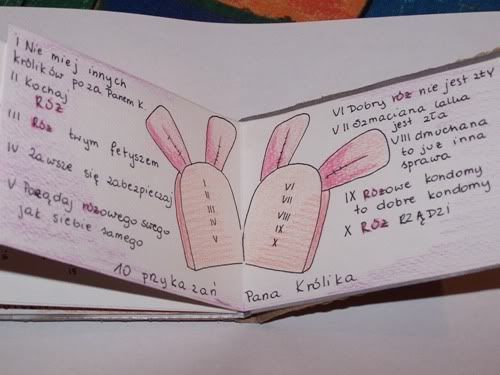 I Nie miej innych
królików poza Panem K.
II Kochaj
RÓŻ
III RÓŻ twym fetyszem
IV Zawsze się zabezpieczaj
V Pożądaj różowego swego
jak siebie samego
I
II
III
IV
V
10 przykazań
VI Dobry róż nie jest zły
VII Szmaciana lalka
jest zła
VIII dmuchana
to już inna
sprawa
IX Różowe kondomy
to dobre kondomy
X RÓŻ RZĄDZI
VI
VII
VIII
IX
X
Pana Królika